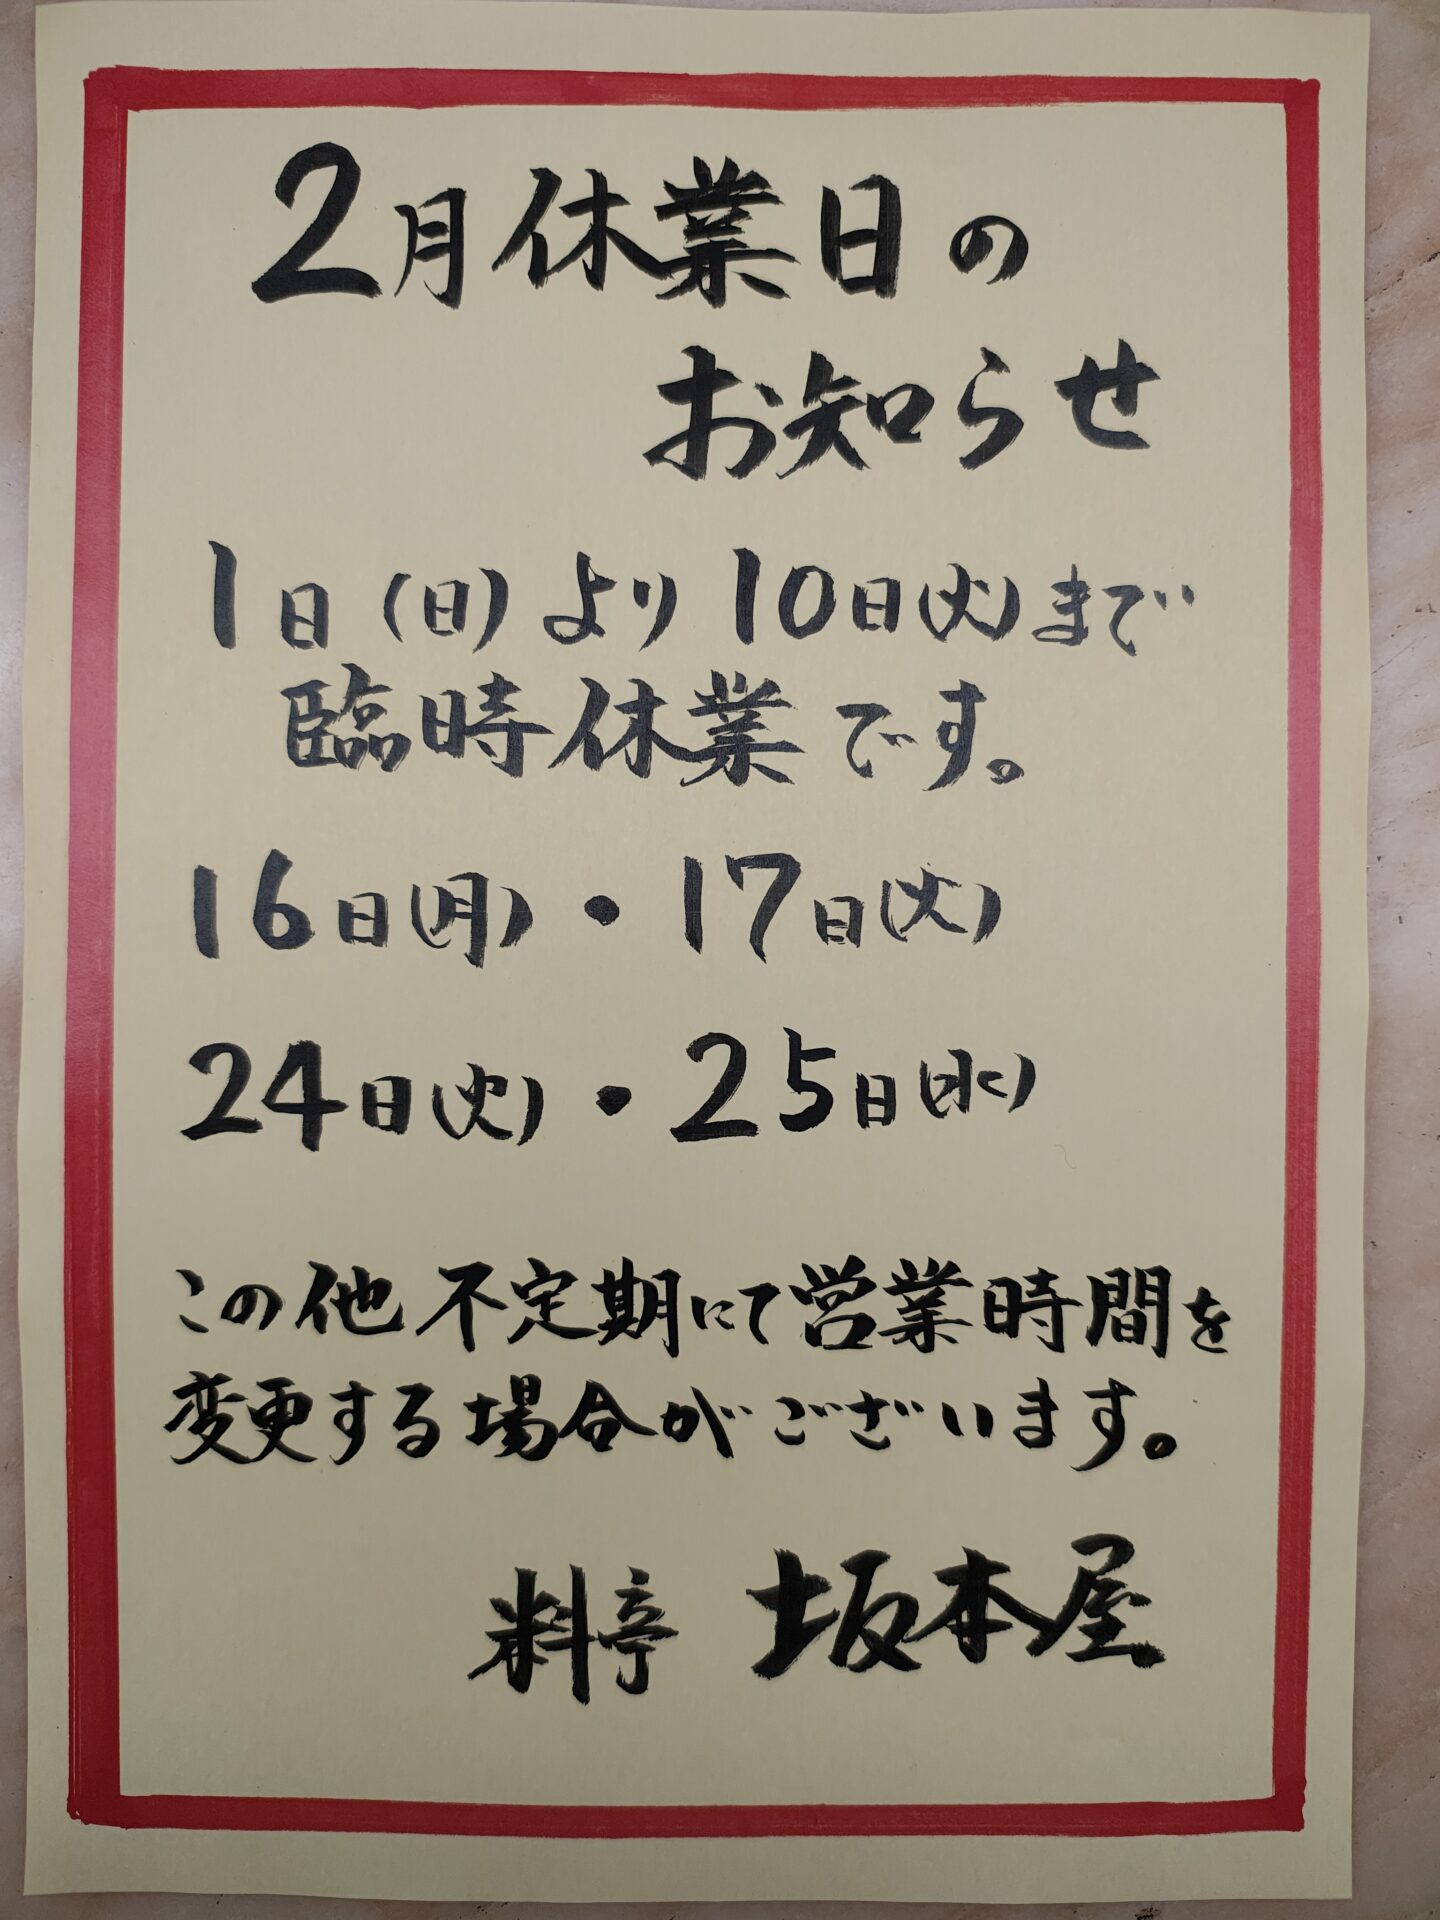 2月休業日の
お知らせ
1日(日)より10日(火)まで
臨時休業です。
16日(月)・17日(火)
24日(火)・25日(水)
この他不定期にて営業時間を
変更する場合がございます。
料亭 坂本屋